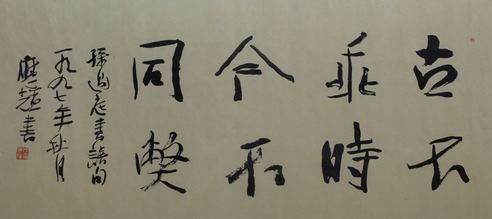 古不
乖時
今不
同弊
孫過庭書譜句
一九九七年秋月